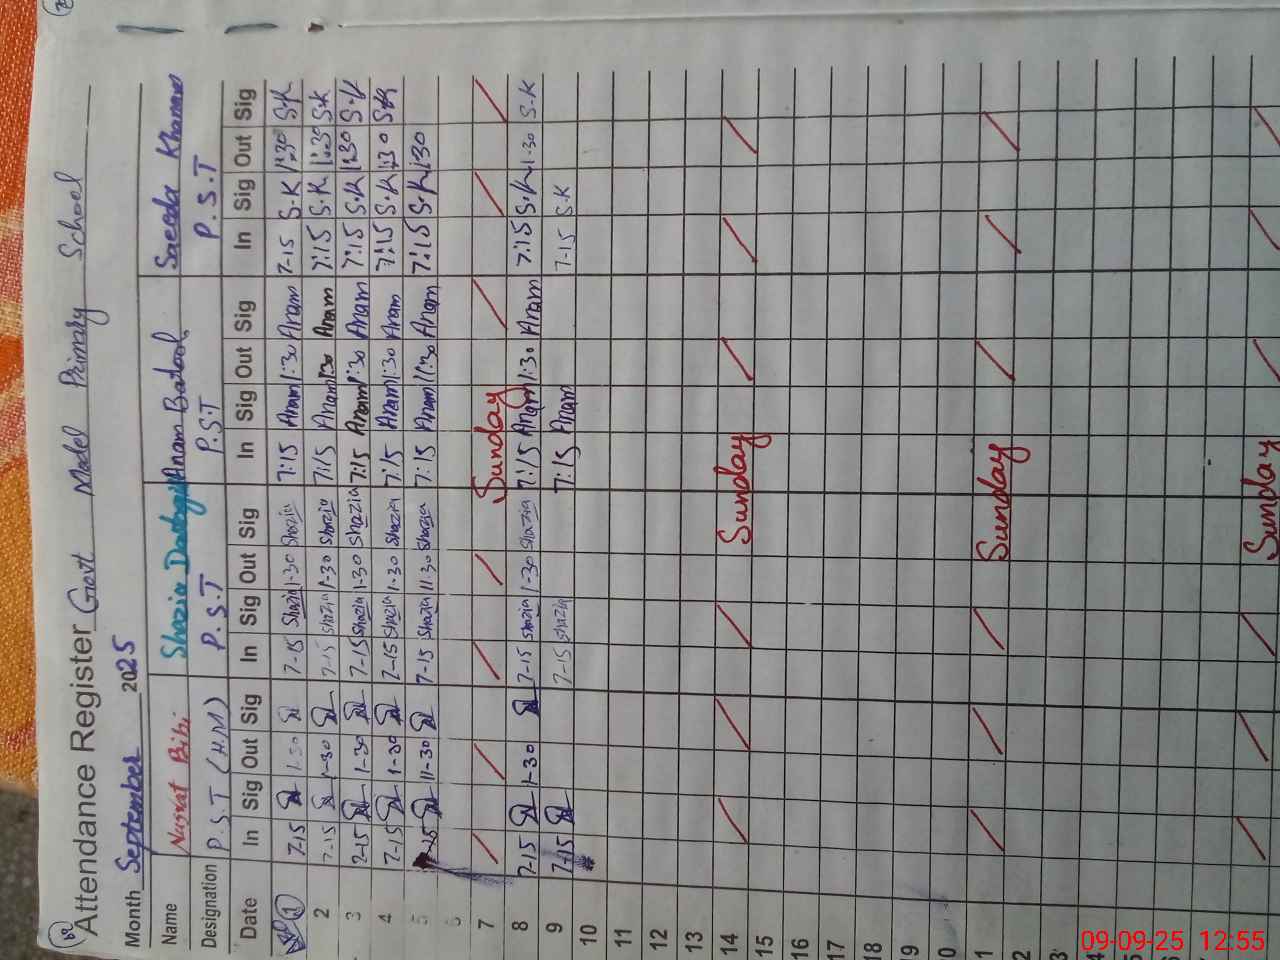 Attendance Register Govt Model Primary School
Month September 2025
Name Nusrat Bibi Shazia Anam Batool Saeeda Khanam
Designation P.S.T (H.M) P.S.T P.S.T P.S.T
Date In Sig Out Sig In Sig Out Sig In Sig Out Sig In Sig Out Sig
1 7-15 1-30 7-15 Shazia 1-30 Shazia 7:15 Anam 1:30 Anam 7-15 S.K 1:30 S.K
2 7-15 1-30 7-15 Shazia 1-30 Shazia 7:15 Anam 1:30 Anam 7:15 S.K 1:30 S.K
3 7-15 1-30 7-15 Shazia 1-30 Shazia 7:15 Anam 1:30 Anam 7:15 S.K 1:30 S.K
4 7-15 1-30 7-15 Shazia 1-30 Shazia 7:15 Anam 1:30 Anam 7:15 S.K 1:30 S.K
5 11-30 7-15 Shazia 11-30 Shazia 7:15 Anam 11:30 Anam 7:15 S.K 1:30
6
7 Sunday
8 7-15 1-30 7-15 Shazia 1-30 Shazia 7:15 Anam 1:30 Anam 7:15 S.K 1-30 S-K
9 7-15 7-15 Shazia 7:15 Anam 7-15 S.K
10
11
12
13
14 Sunday
15
16
17
18
19
0
1 Sunday
2
3
4
5
6
7
Sunday
09-09-25 12:55